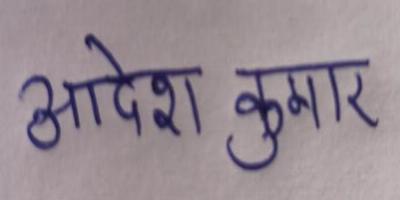 आदेश कुमार